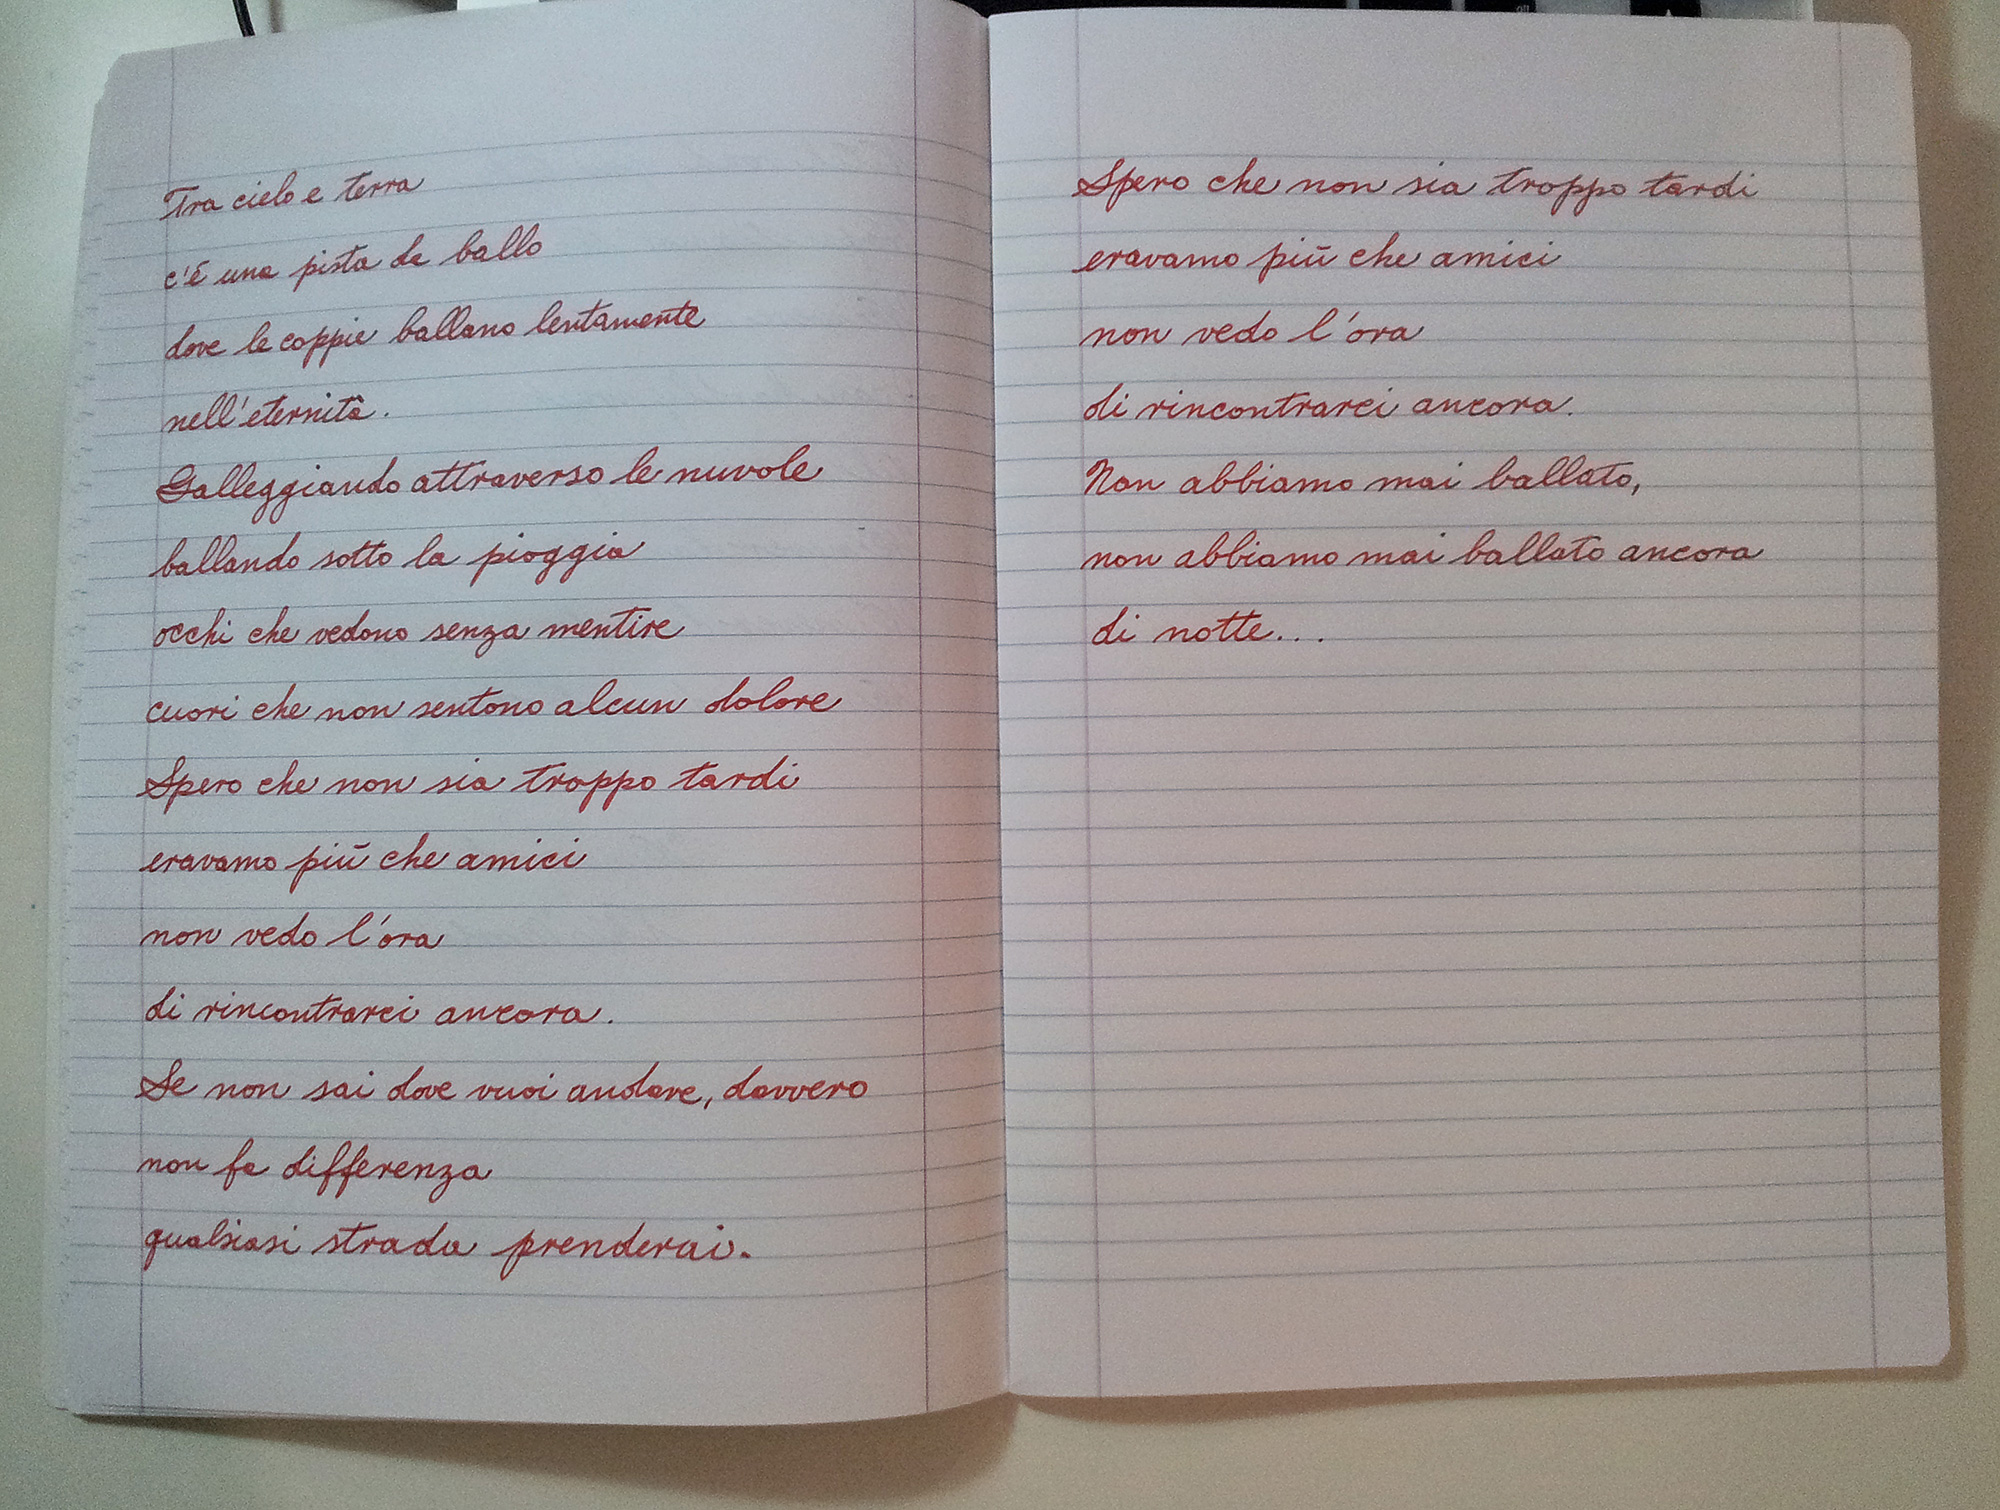 Tra cielo e terra
c'é una pista da ballo
dove le coppie ballano lentamente
nell'eternità.
Galleggiando attraverso le nuvole
ballando sotto la pioggia
occhi che vedono senza mentire
cuori che non sentono alcun dolore
Spero che non sia troppo tardi
eravamo più che amici
non vedo l'ora
di rincontrarci ancora.
Se non sai dove vuoi andare, davvero
non fa differenza
qualsiasi strada prenderai.
Spero che non sia troppo tardi
eravamo più che amici
non vedo l'ora
di rincontrarci ancora.
Non abbiamo mai ballato,
non abbiamo mai ballato ancora
di notte...